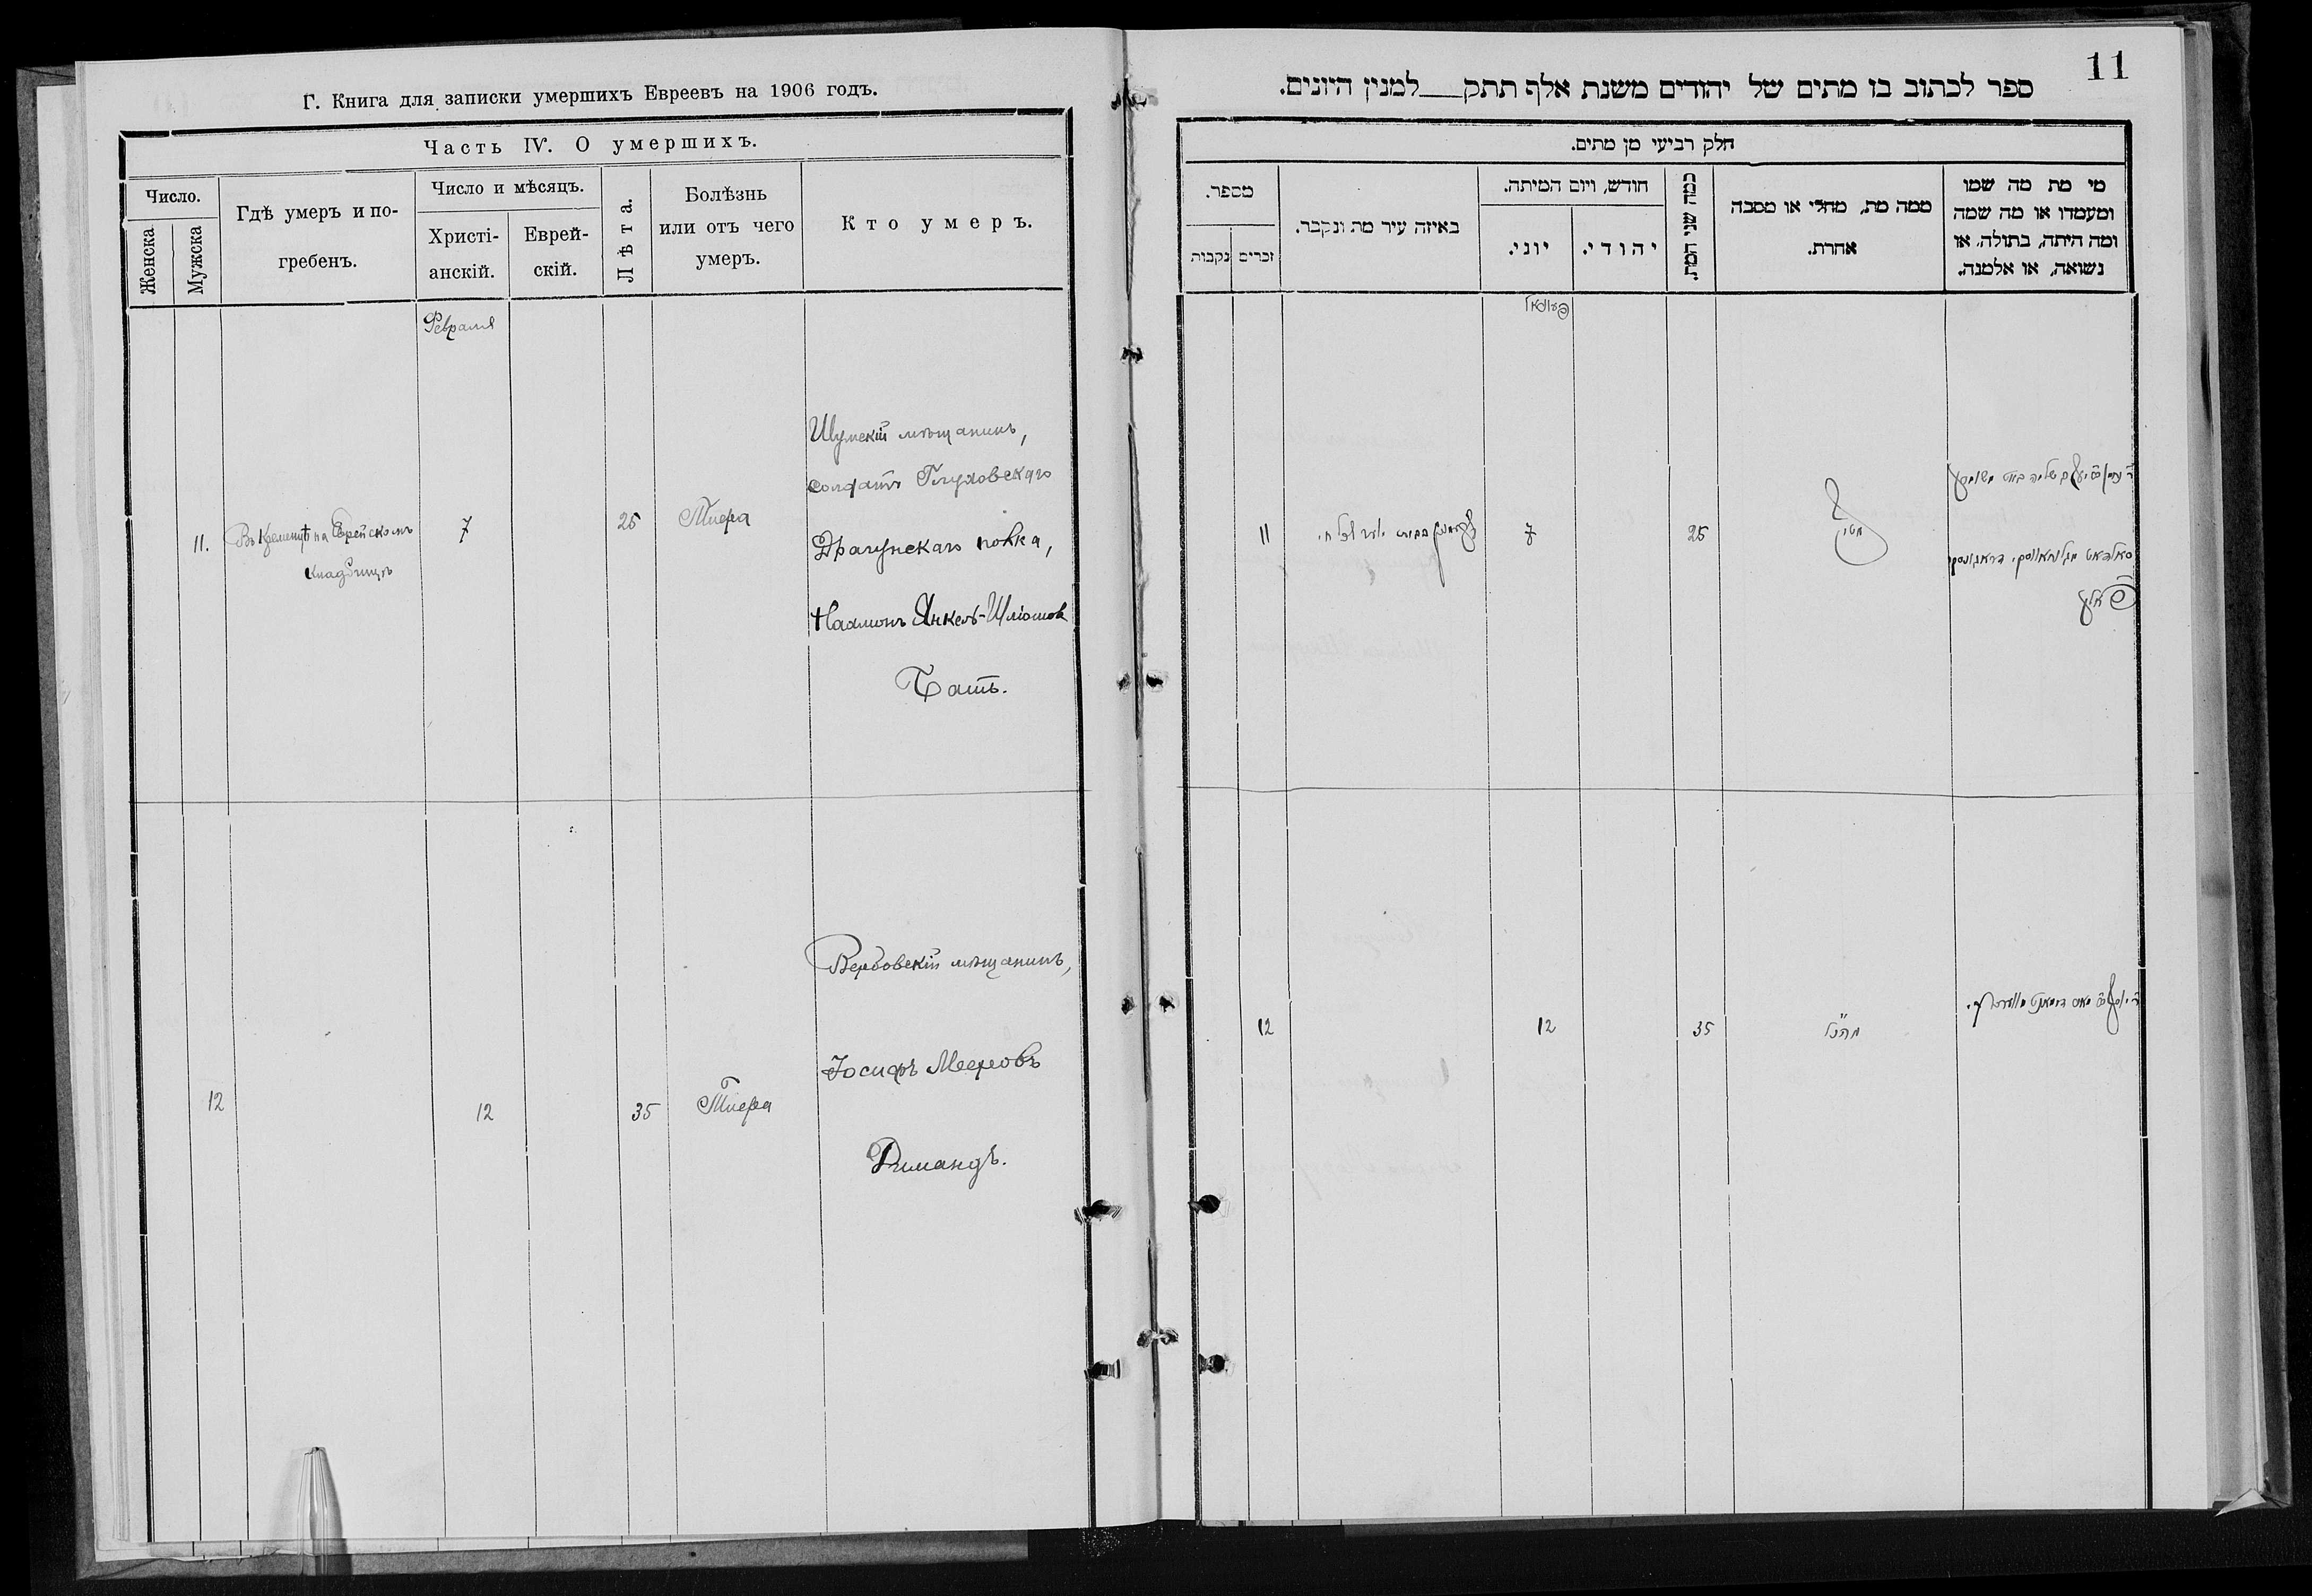 Г. Книга для записки умершихъ Евреевъ на 1906 годъ.
Часть IV. О умершихъ.
Число.
Женска
Мужска
Гдѣ умеръ и по-
гребенъ.
Число и мѣсяцъ.
Христі-
анскій.
Еврей-
скій.
Лѣта.
Болѣзнь
или отъ чего
умеръ.
Кто умеръ.
Февраля
11.
Въ Кременцѣ на Еврейскомъ
кладбищѣ
7
25
Тифа
Шумскій мѣщанинъ,
солдатъ Глуховскаго
Драгунскаго полка,
Нахманъ Янкель-Шліомов
Батъ.
12
12
35
Тифа
Вербовскій мѣщанинъ,
Іосифъ Мееровъ
Римандъ.
11
ספר לכתוב בז מתים של יהודים משנת אלף תתק למנין היונים.
חלק רביעי מן מתים.
מספר.
נקבות
זכרים
באיזה עיר מת ונקבר.
חודש, ויום המיתה.
יוני.
יהודי.
כמה שני המת.
ממה מת, מחלי או מסבה
אחרת.
מי מת מה שמו
ומעמדו או מה שמה
ומה היתה, בתולה, או
נשואה, או אלמנה.
11
7
25
12
12
35